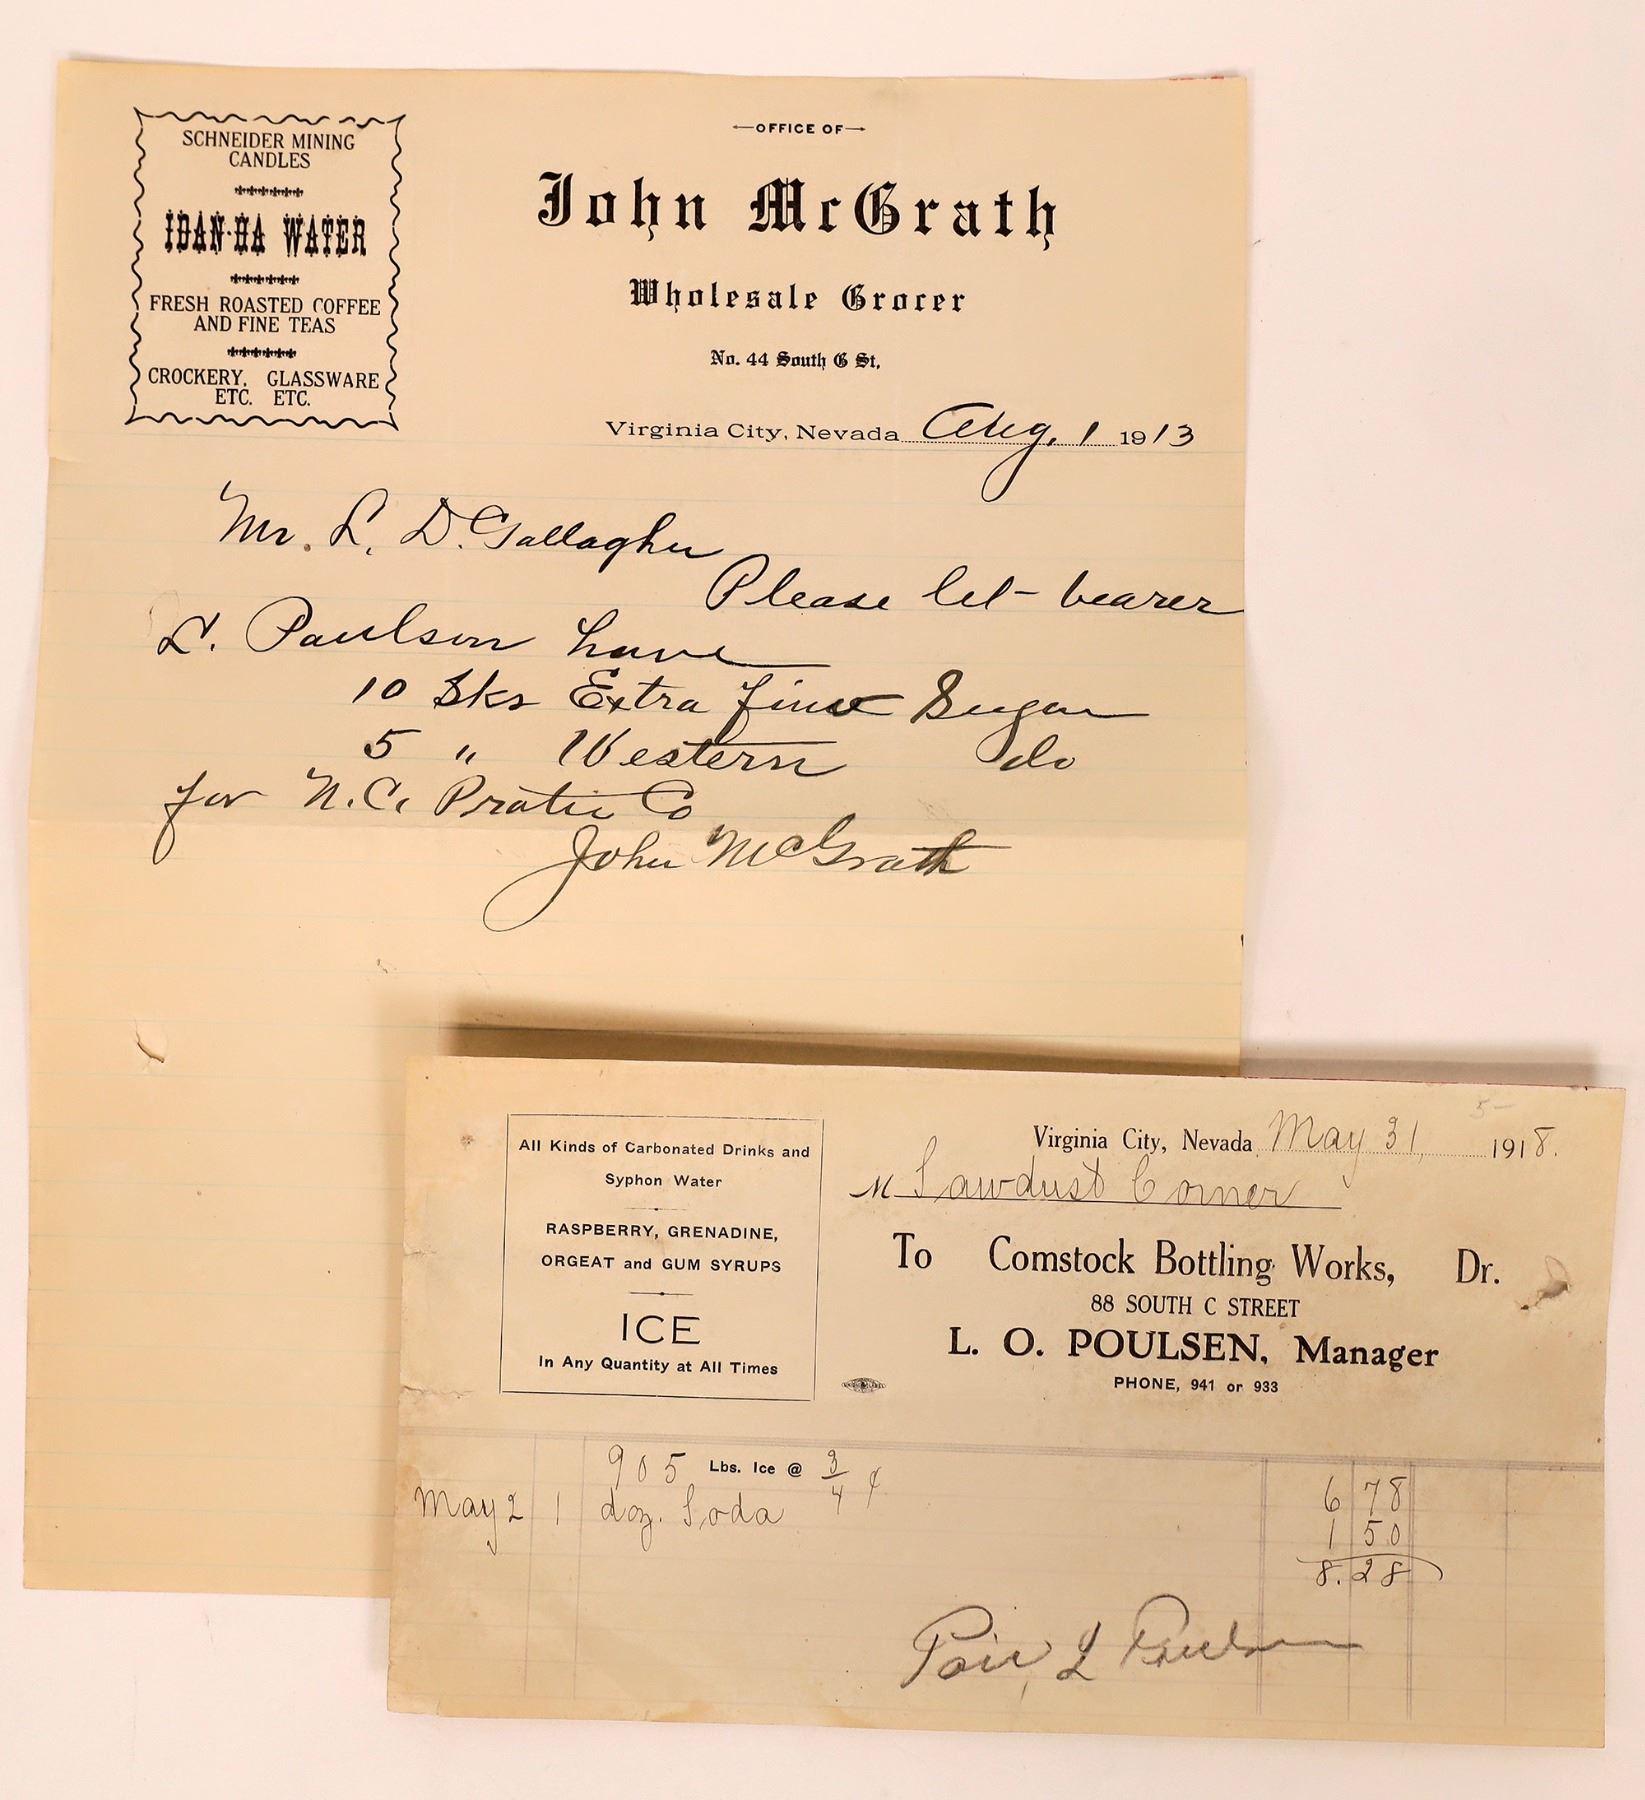 SCHNEIDER MINING
CANDLES
IDAN-HA WATER
FRESH ROASTED COFFEE
AND FINE TEAS
CROCKERY, GLASSWARE
ETC. ETC.
—OFFICE OF—
John McGrath
Wholesale Grocer
No. 44 South C St.
Virginia City, Nevada Aug. 1 1913
Mr. L. D. Gallagher
Please let bearer
L. Paulson have
10 Sks Extra fine Sugar
5 " Western do
for N.C. Co
John McGrath
All Kinds of Carbonated Drinks and
Syphon Water
RASPBERRY, GRENADINE,
ORGEAT and GUM SYRUPS
ICE
In Any Quantity at All Times
5-
Virginia City, Nevada, May 31, 1918.
M Sawdust Corner
To Comstock Bottling Works, Dr.
88 SOUTH C STREET
L. O. POULSEN, Manager
PHONE, 941 or 933
905 Lbs. Ice @ 3/4 ¢ 6 78
May 2 1 doz. Soda 1 50
8.28
L Poulsen